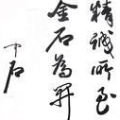 精誠所至
金石為開
中石